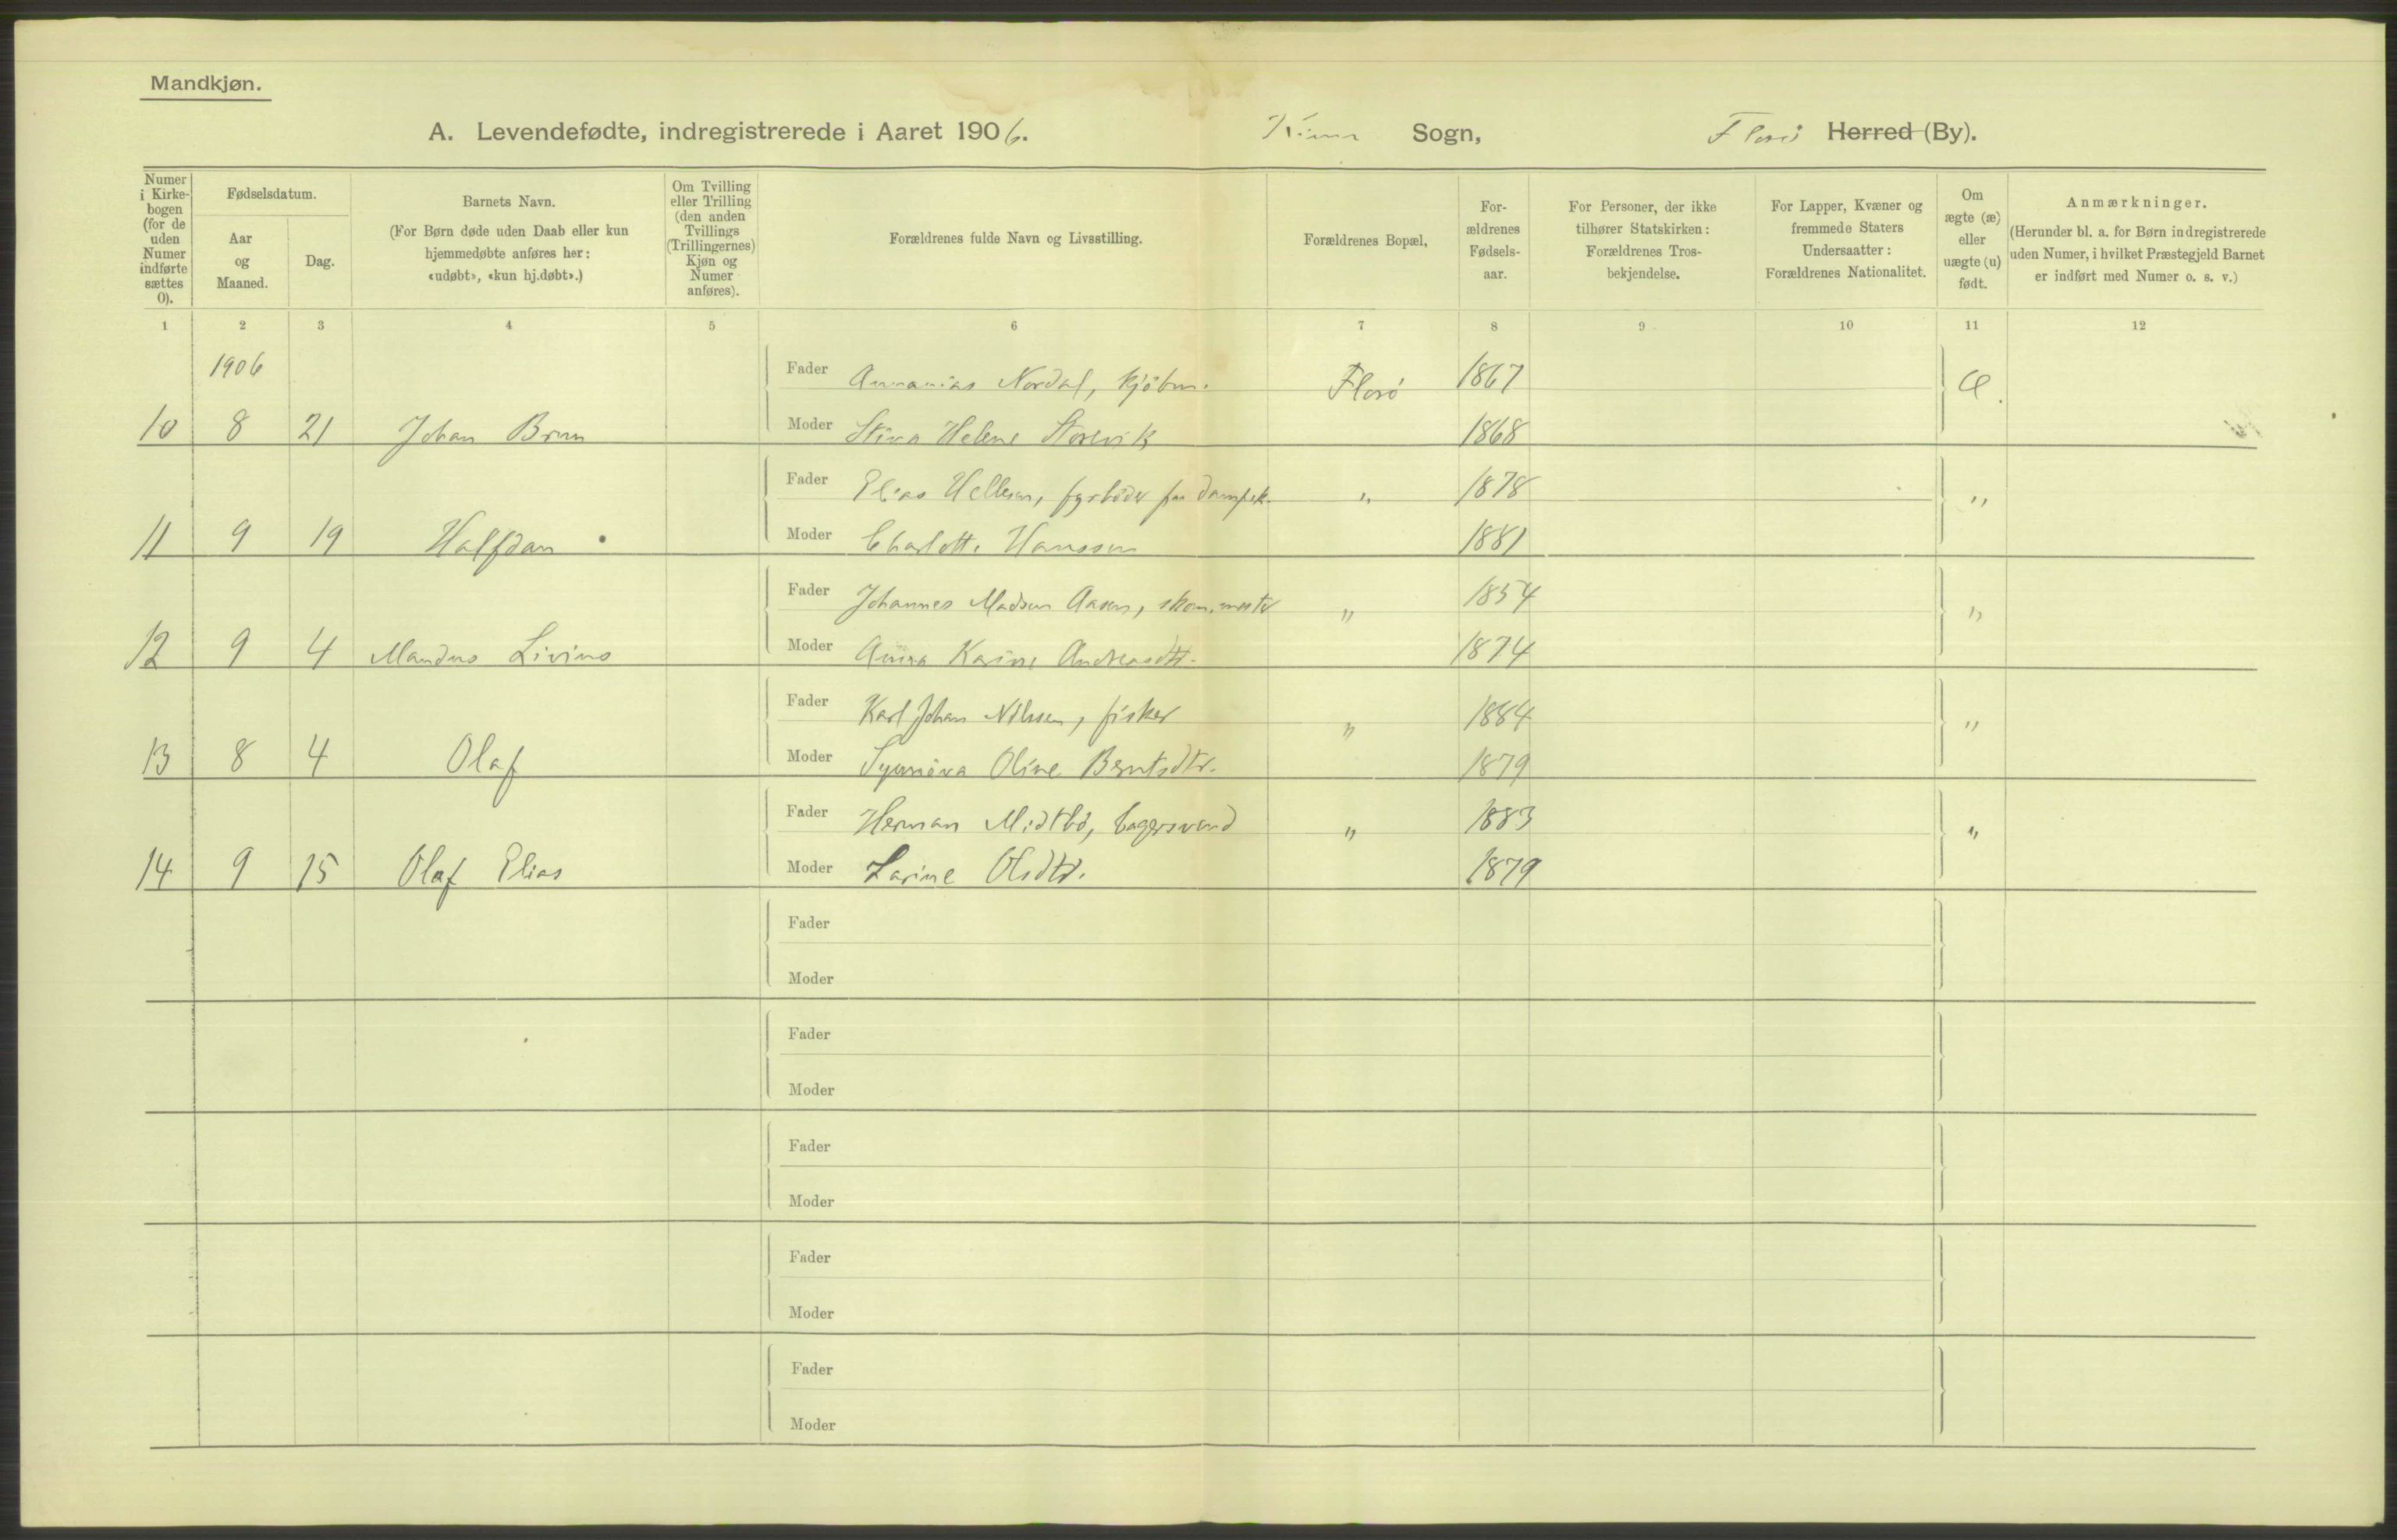 Mandkjøn.
A. Levendefødte, indregistrerede i Aaret 1906. Kinn Sogn, Florö Herred (By).
Numer i Kirkebogen (for de uden Numer indførte sættes 0).
Fødselsdatum.
Aar og Maaned.
Dag.
Barnets Navn.
(For Børn døde uden Daab eller kun
hjemmedøbte anføres her:
«udøbt», «kun hj.døbt».)
Om Tvilling
eller Trilling
(den anden
Tvillings
(Trillingernes)
Kjøn og
Numer
anføres).
Forældrenes fulde Navn og Livsstilling.
Forældrenes Bopæl,
For-
ældrenes
Fødsels-
aar.
For Personer, der ikke
tilhører Statskirken:
Forældrenes Tros-
bekjendelse.
For Lapper, Kvæner og
fremmede Staters
Undersaatter:
Forældrenes Nationalitet.
Om
ægte (æ)
eller
uægte (u)
født.
Anmærkninger.
(Herunder bl. a. for Børn indregistrerede
uden Numer, i hvilket Præstegjeld Barnet
er indført med Numer o. s. v.)
1 2 3 4 5 6 7 8 9 10 11 12
1906 Fader Annanias Nordal, kjöbm. Florö 1867 æ.
10 8 21 Johan Brun Moder Stina Helene Storevik 1868
Fader Elias Hellesen, fyrböder paa dampsk. " 1878 "
11 9 19 Halfdan Moder Charlotte Hanssen 1881
Fader Johannes Madsen Aasen, skom.mester " 1854 "
12 9 4 Mandus Livius Moder Anna Karine Andreasdtr. 1874
Fader Karl Johan Nilssen, fisker " 1884 "
13 8 4 Olaf Moder Synnöva Oline Berntsdtr. 1879
Fader Herman Midtbö, bagersvend " 1883 "
14 9 15 Olaf Elias Moder Larine Olsdtr. 1879
Fader
Moder
Fader
Moder
Fader
Moder
Fader
Moder
Fader
Moder